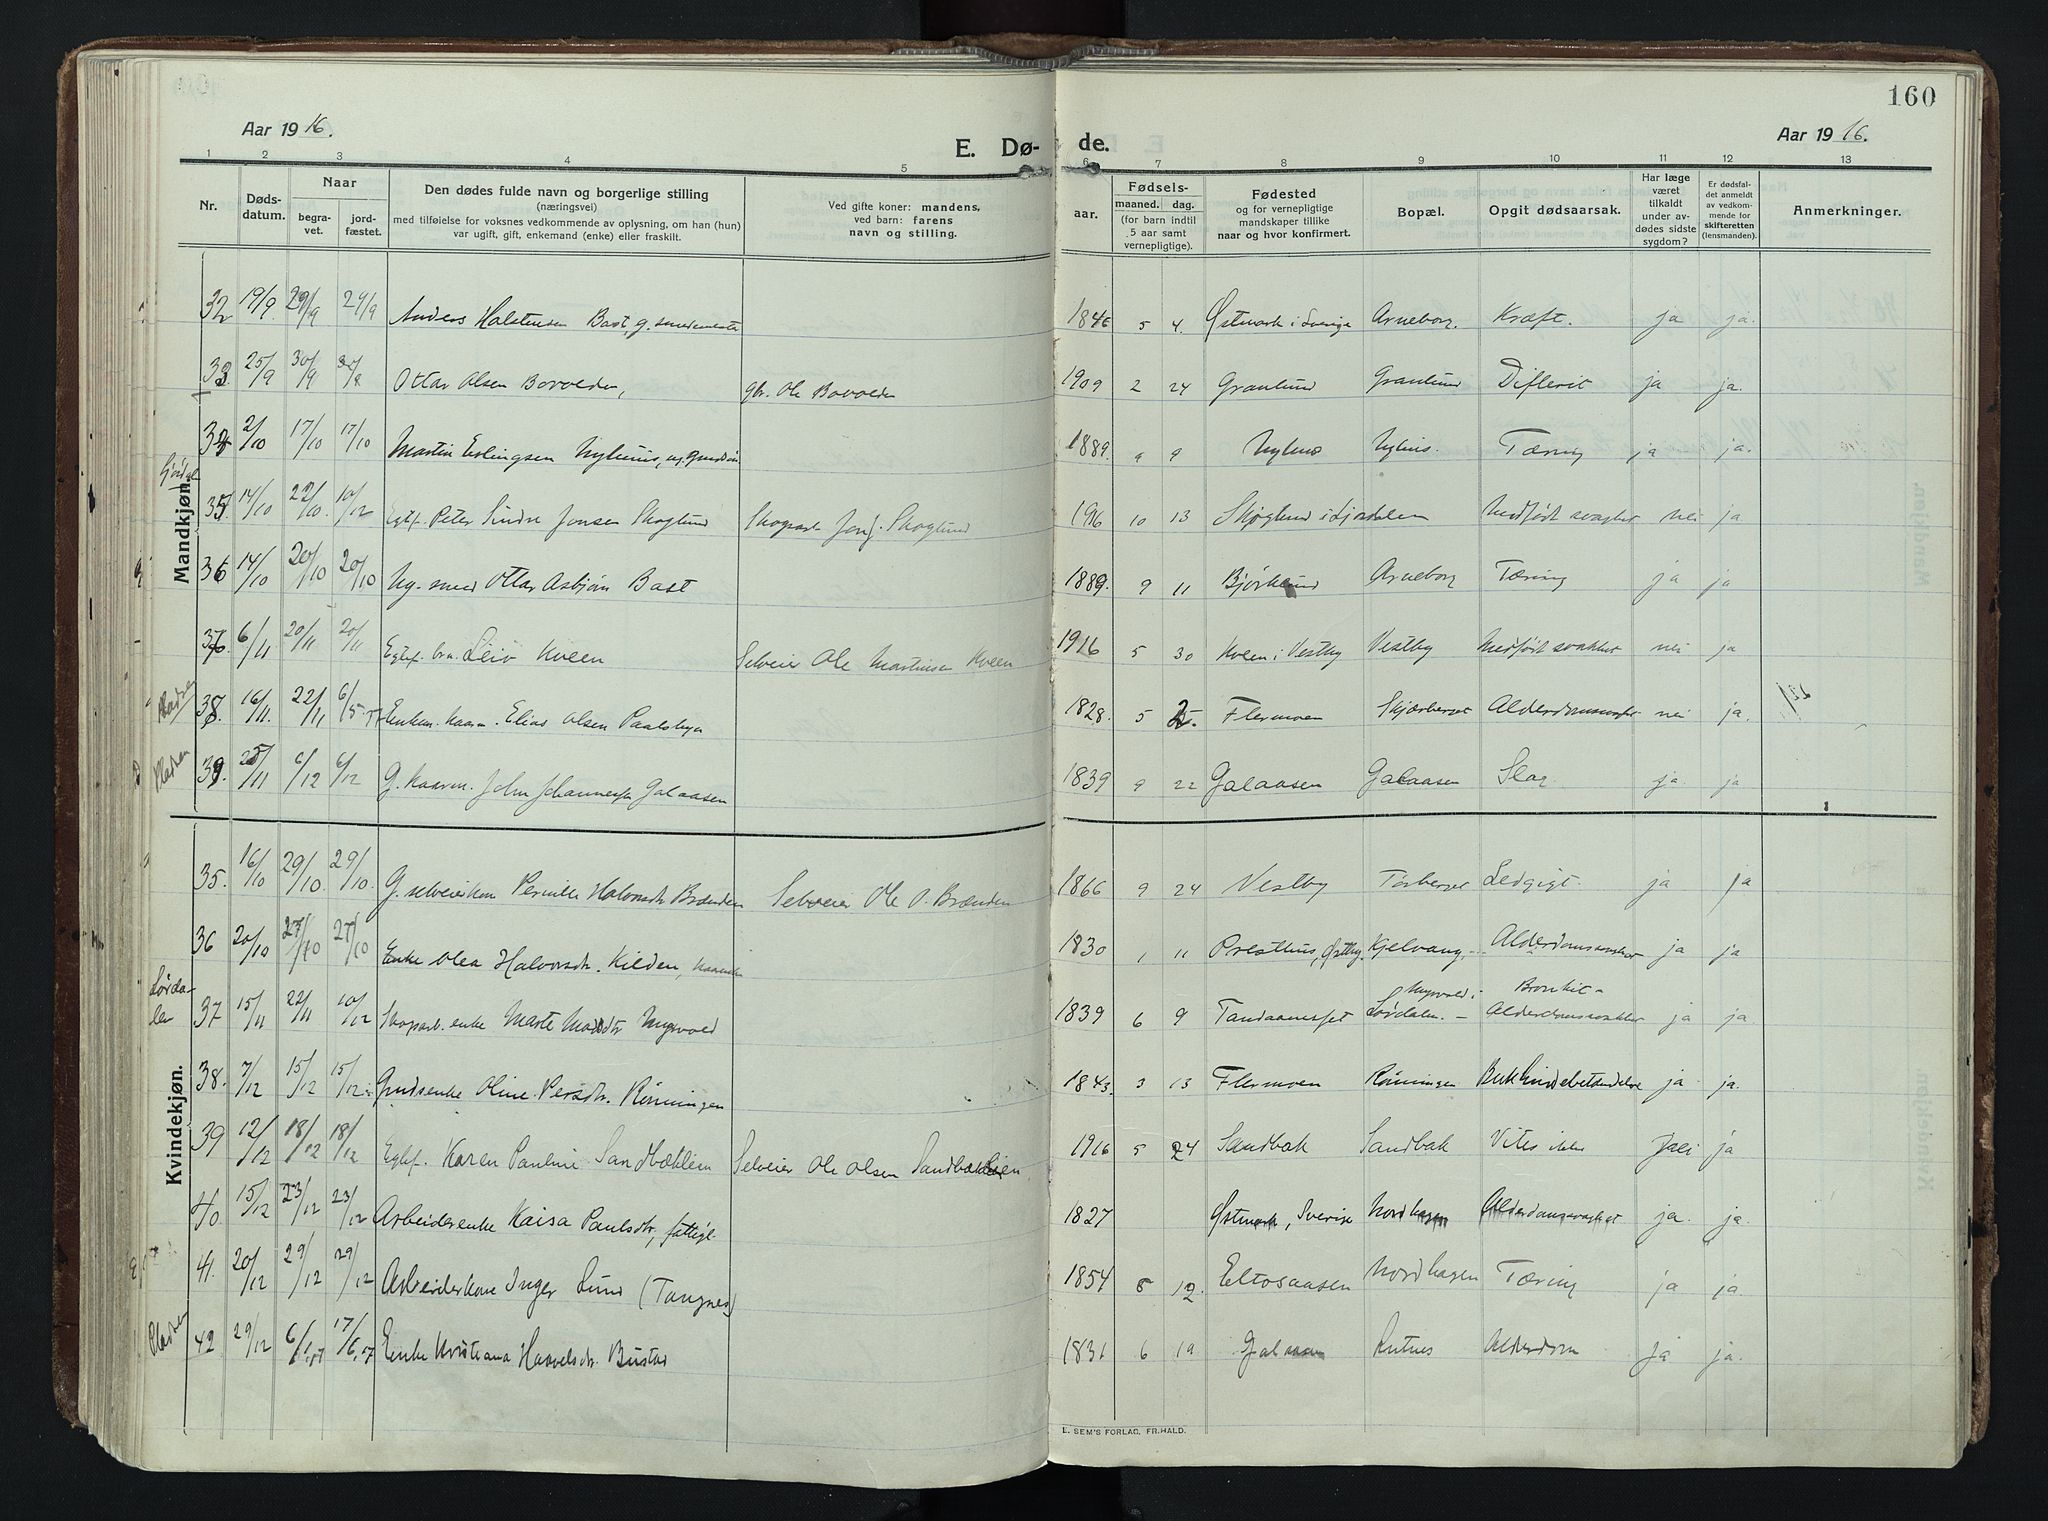 160
Aar 1916.
E. Dø- de.
Aar 1916.
1 2 3 4 5 6 7 8 9 10 11 12 13
Nr.
Døds-
datum.
Naar
begra-
vet.
jord-
fæstet.
Den dødes fulde navn og borgerlige stilling
(næringsvei)
med tilføielse for voksnes vedkommende av oplysning, om han (hun)
var ugift, gift, enkemand (enke) eller fraskilt.
Ved gifte koner: mandens,
ved barn: farens
navn og stilling.
aar.
Fødsels-
maaned. dag.
(for barn indtil
5 aar samt
vernepligtige).
Fødested
og for vernepligtige
mandskaper tillike
naar og hvor konfirmert.
Bopæl.
Opgit dødsaarsak.
Har læge
været
tilkaldt
under av-
dødes sidste
sygdom?
Er dødsfal-
det anmeldt
av vedkom-
mende for
skifteretten
(lensmanden).
Anmerkninger.
Mandkjøn.
32 19/9 29/9 24/9 Anders Halstensen Bast, g. smedemester 1846 5 4. Østmark i Sverige Arneberg. Kræft. ja ja.
33. 25/9 30/9 Ottar Olsen Bovolden, gbr. Ole Bovolden 1909 2 24 Granlund Granlund Difterit ja ja.
34 2/10 17/10 17/10 Martin Erlingsen Nyhuus, 1889. 9 9 Nyhus Nyhus. Tæring ja ja.
35 14/10 22/10. 10/12 Egtef. Peter Sindre Jonsen Skoglund Skogarb. Skoglund 1916 10 13 Skoglund i Ljørdalen Medfødt svakhet nei ja
36 14/10 20/10 20/10 Ug. smed Ottar Asbjørn Bast 1889. 9 11 Bjørklund Arneberg Tæring ja ja
37 6/11 20/11 20/11 Egtef. Leiv Kveen Selveier Ole Martinsen Kveen 1916 5 30 Kveen i Vestby Vestby Medfødt svakhet nei ja
Pladsen
38. 16/11. 22/11 6/5.17 Enkem. kaarm. Elias Olsen Paalsbyn 1828. 5 25. Flermoen Skjærberget nei ja.
Pladsen
39. 25/11 6/12 6/12 G. kaarm. John Johannessen Galaasen 1839 9 22 Galaasen Galaasen Slag ja ja
Kvindekjøn.
35. 16/10 29/10. 29/10. G. selveierkone Pernille Halvorsdtr Brænden Selveier Ole O. Brænden 1866 9 24 Vestby Tørberget Ledgigt. ja ja
36 20/10 27/10 27/10 Enke Olea Halvorsdtr. Kilden, 1830 1 11 Presthus, Østby. Kjølvang, Alderdomssvakhet ja ja
Lørda-
len
37 15/11 22/11 10/12 Skogarb. enke Marte Myrvold 1839 6 9 Myrvold i Lørdalen. Bronkit - Alderdomssvakhet ja ja.
38. 7/12 15/12 15/12 Gmdsenke Oline Persdtr. Rønningen 1843. 3 13 Flermoen Rønningen Bukhindebetændelse ja ja.
39 12/12 18/12 18/12 Egtef. Karen Pauline Sandbæklien Selveier Ole Olsen Sandbæklien 1916 5 24 Sandbæk Sandbæk Vites ikke ja
40 15/12 23/12 23/12 Arbeiderenke Kaisa Paulsdtr, fattigl. 1827 Østmark, Sverige Nordhagen Alderdomssvakhet ja. ja.
41. 20/12 29/12 29/12 Arbeiderkone Inger Lund (Tangnes) 1854 5 12. Eltosaasen Nordhagen Tæring ja ja
Pladsen
42. 29/12 6/1.17 17/6.17 Enke Kristiana Haavelsdr. Bustad 1831 6 19 Galaasen Lutnes Alderdom ja ja.
E. SEM'S FORLAG, FR.HALD.